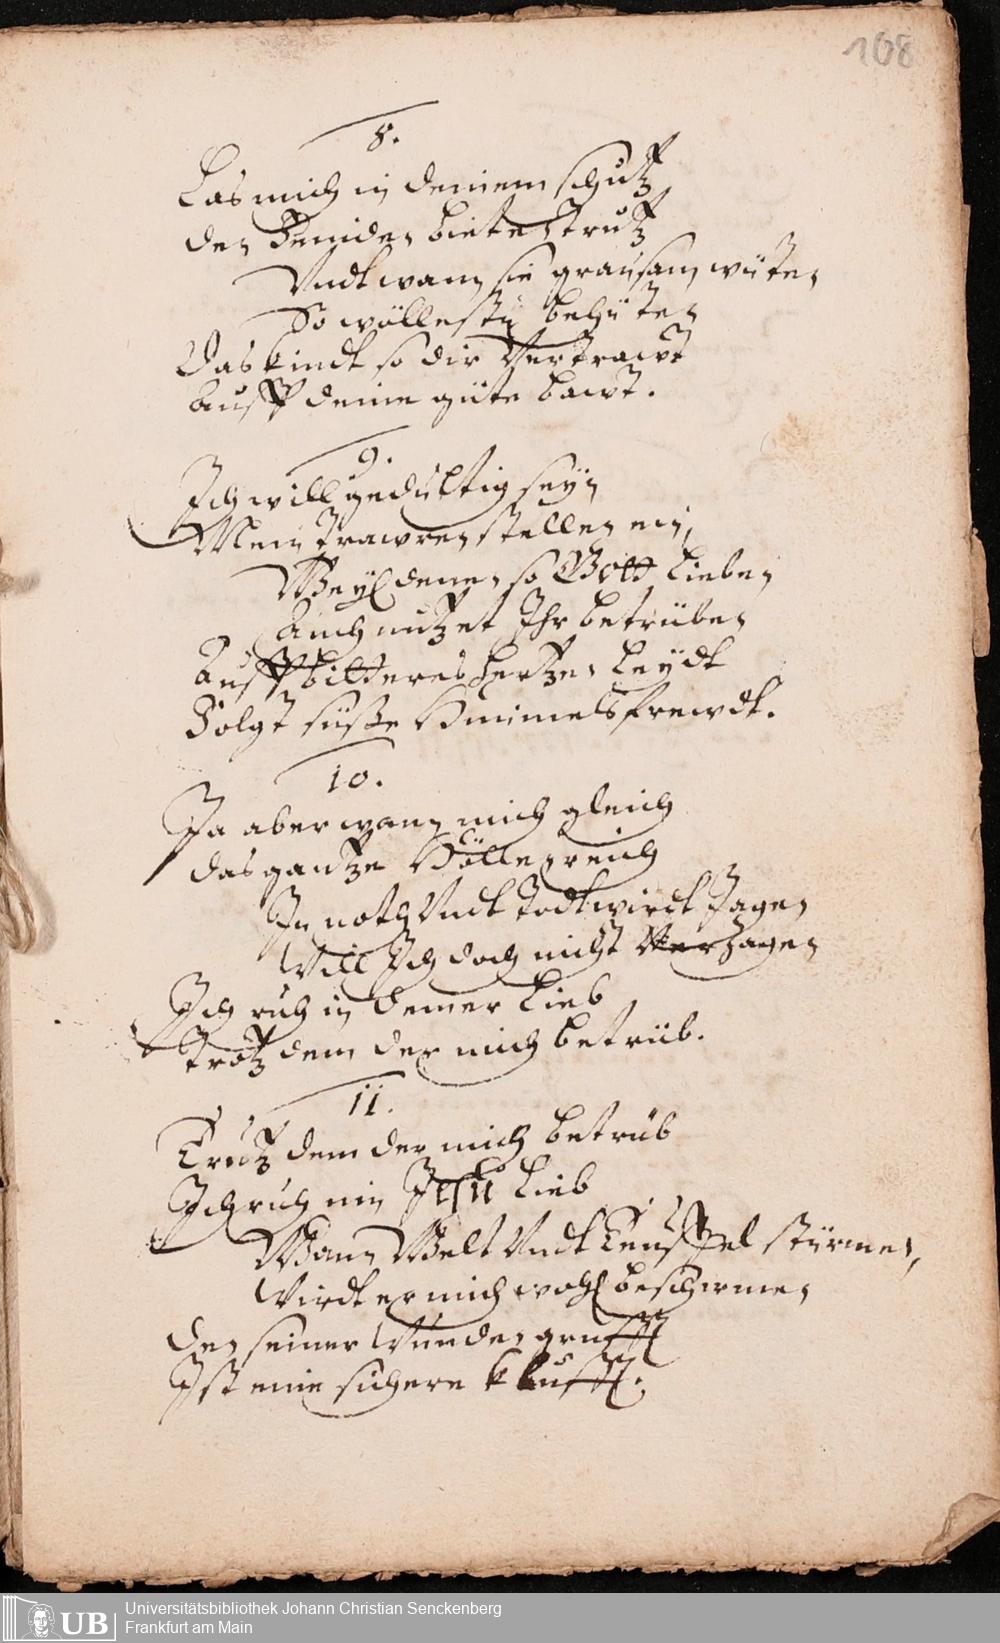 108
8.
Las mich in deinem schutz
den Feinden bieten trutz
Undt wann sie grausam wüten
So wöllestu behüten
Das kindt so dir Vertrawt
Auff deine güte bawt.
9.
Ich will gedultig seyn
Mein trawren stellen ein,
Weyl denen so Gott lieben
Auch nutzet Ihr betrüben
Auff bitteres hertzen leydt
Folgt süsse Himmels frewdt.
10.
Ja aber wann mich gleich
das gantze Höllenreich
In noth Undt todt wirdt Jagen
Will Ich doch nicht Verzagen
Ich ruh in deiner lieb
trotz dem der mich betrüb.
11.
Trutz dem der mich betrüb
Ich ruh inn Jesu lieb
Wann Welt Undt Teuffel stürmen,
Wirdt er mich wohl beschirmen
den seiner Wunden grufft
Ist eine sichere klufft.
UB
Universitätsbibliothek Johann Christian Senckenberg
Frankfurt am Main